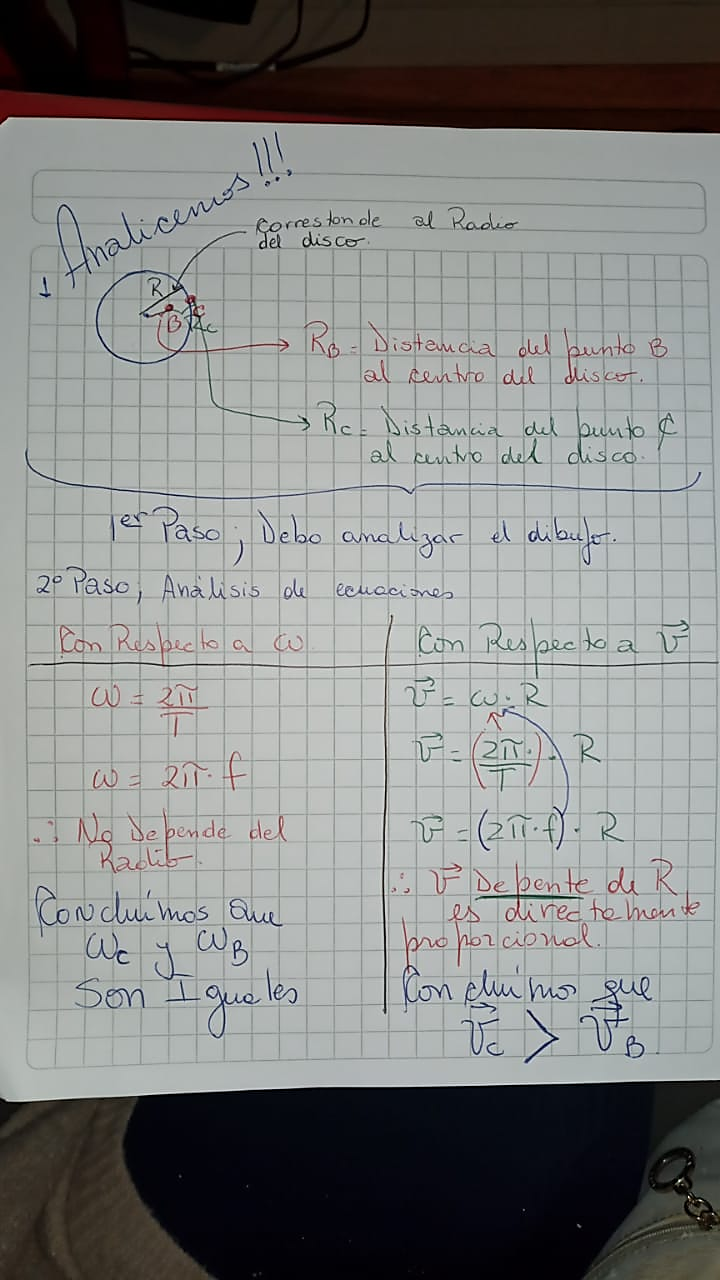 Analicemos!!!
1
Correstonde al Radio
del disco.
R
B
Rc
RB = Distancia del punto B
al centro del disco.
Rc = Distancia del punto C
al centro del disco.
1er Paso; Debo analizar el dibujo.
2º Paso; Análisis de ecuaciones
Con Respecto a ω
ω = 2π/T
ω = 2π·f
∴ No Depende del
Radio.
Concluímos Que
ωc y ωB
Son Iguales
Con Respecto a v⃗
v⃗ = ω·R
v⃗ = (2π/T)·R
v⃗ = (2π·f)·R
∴ v⃗ Depente de R
es directamente
proporcional.
Concluímos que
v⃗c > v⃗B